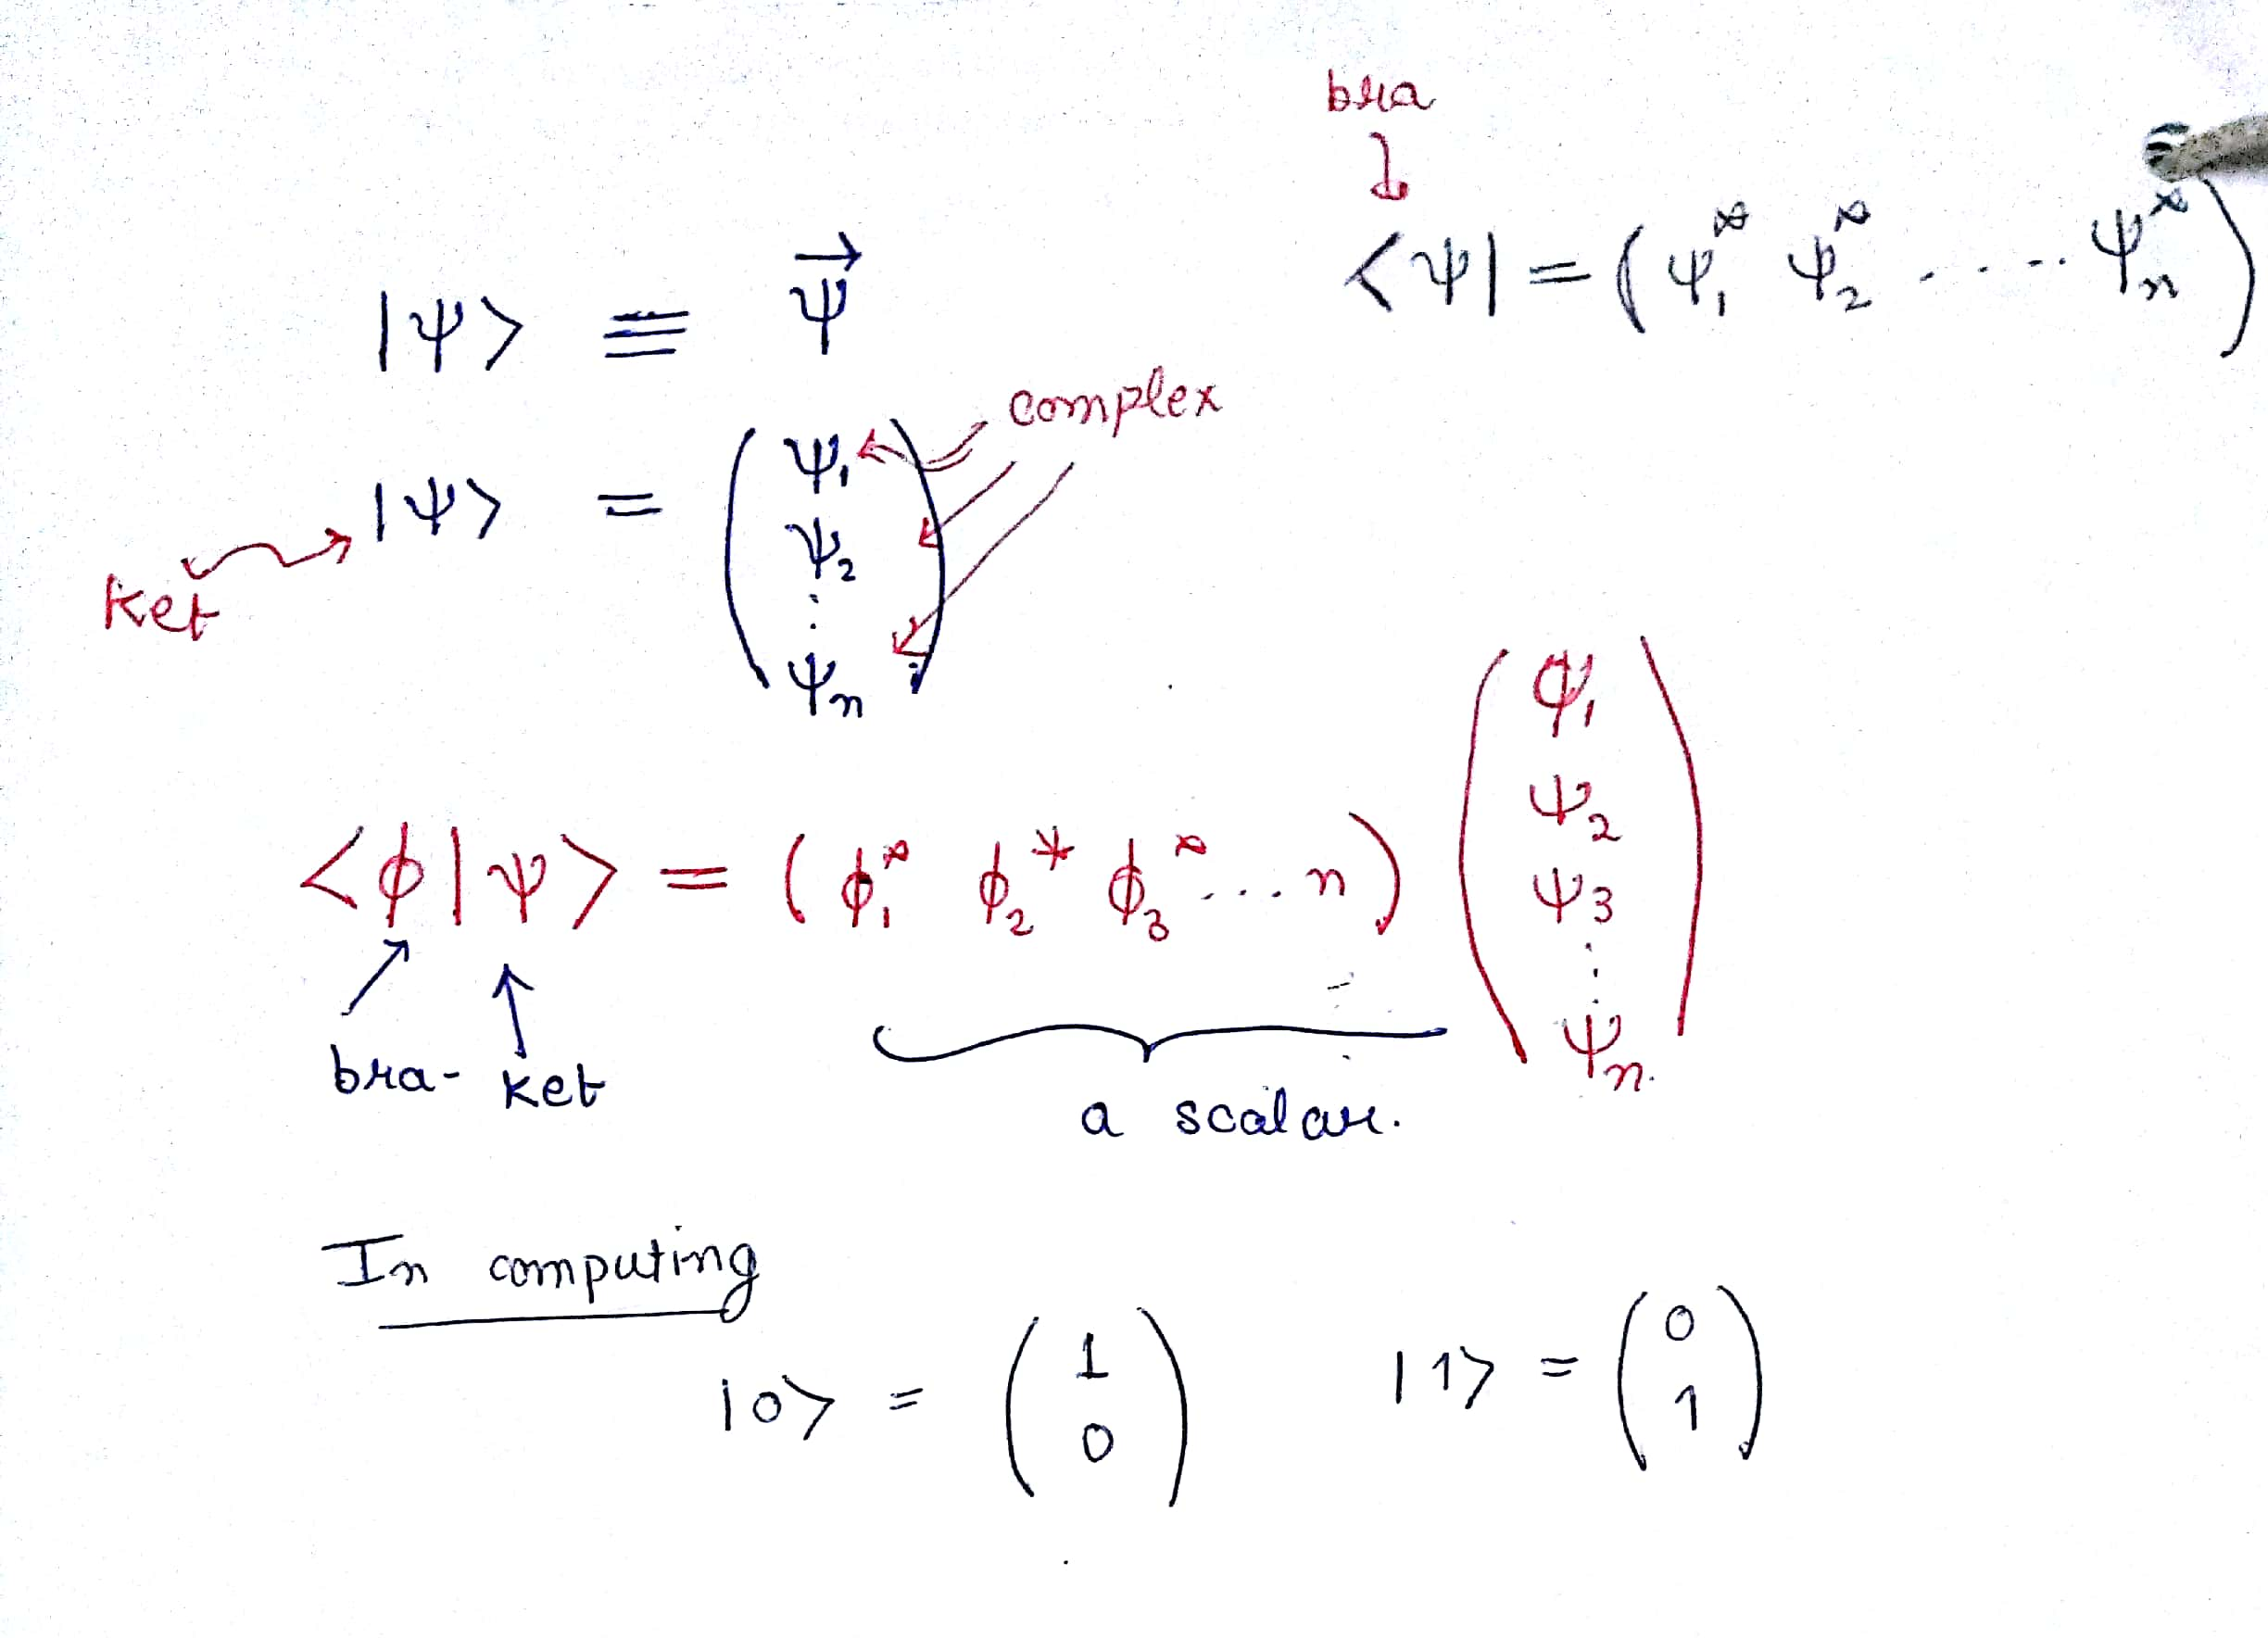 bra
<ψ| = (ψ₁* ψ₂* ..... ψₙ*)
|ψ> ≡ ψ⃗
complex
|ψ> = (ψ₁ ψ₂ ⋮ ψₙ)
ket
<φ|ψ> = (φ₁* φ₂* φ₃* .... n) (ψ₁ ψ₂ ψ₃ ⋮ ψₙ)
bra- ket
a scalar.
In computing
|0> = (1 0) |1> = (0 1)